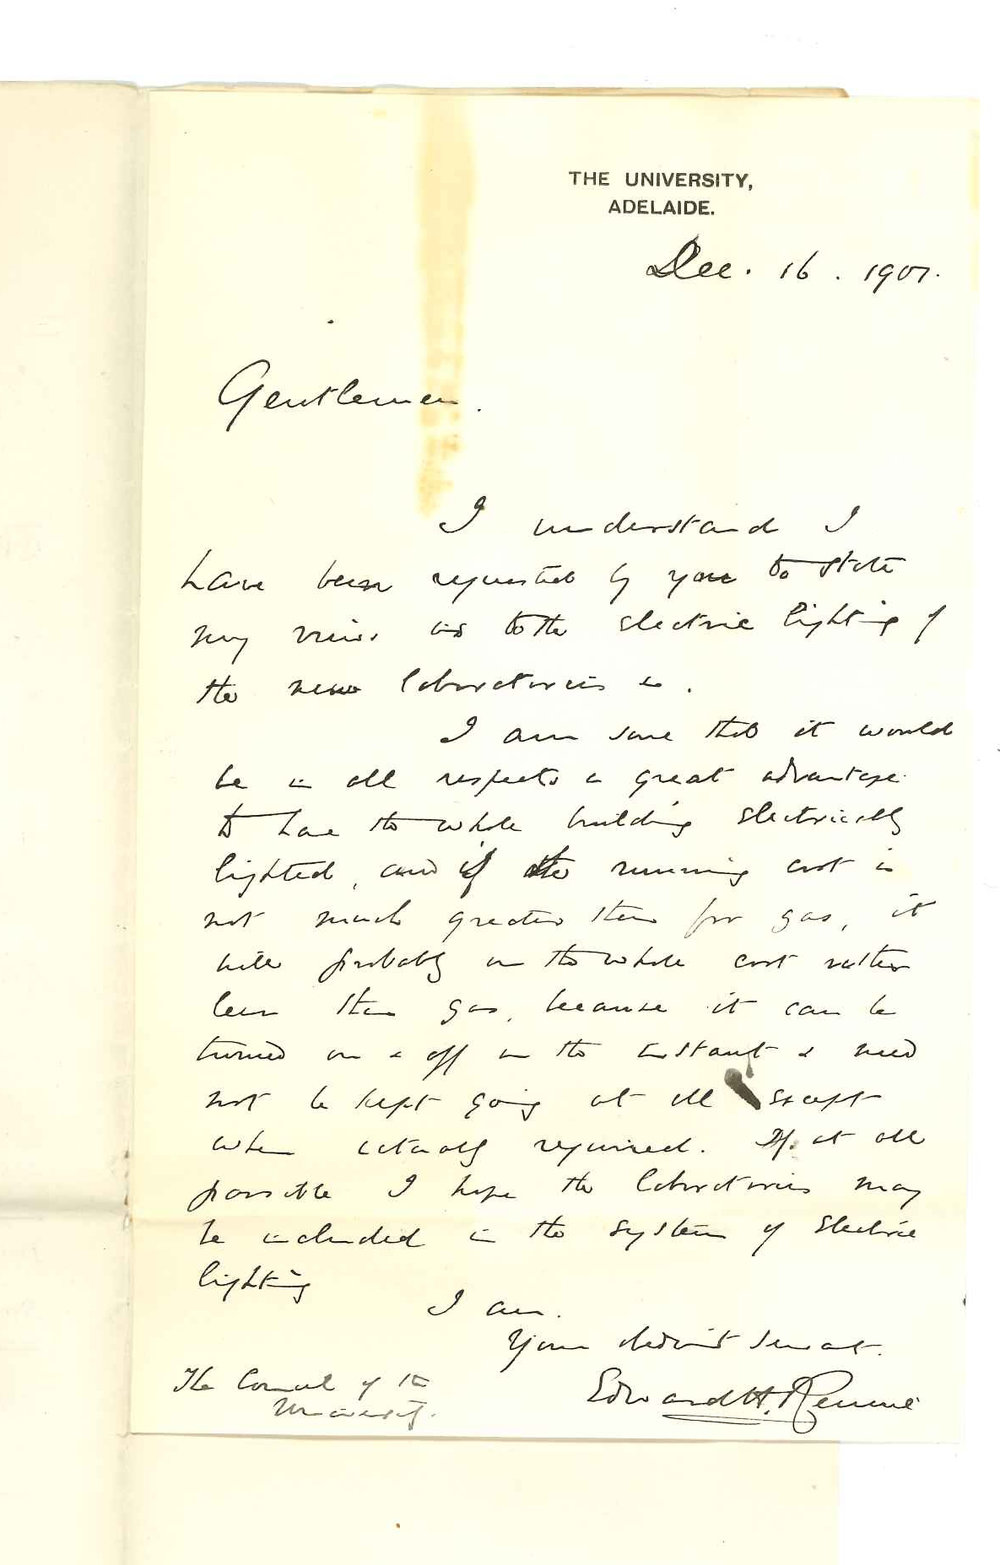 THE UNIVERSITY,
ADELAIDE.
Dec. 16. 1901.
Gentlemen.
I understand I
have been requested by you to state
my views as to the electric lighting of
the new laboratories &.
I am sure that it would
be in all respects a great advantage
to have the whole building electrically
lighted, and if the running cost is
not much greater than for gas, it
will probably on the whole cost rather
less than gas, because it can be
turned on & off in the instant & need
not be kept going at all except
when actually required. If at all
possible I hope the laboratories may
be included in the system of electric
lighting
I am.
Your obedient servant.
Edward H. Rennie
The Council of the
University.